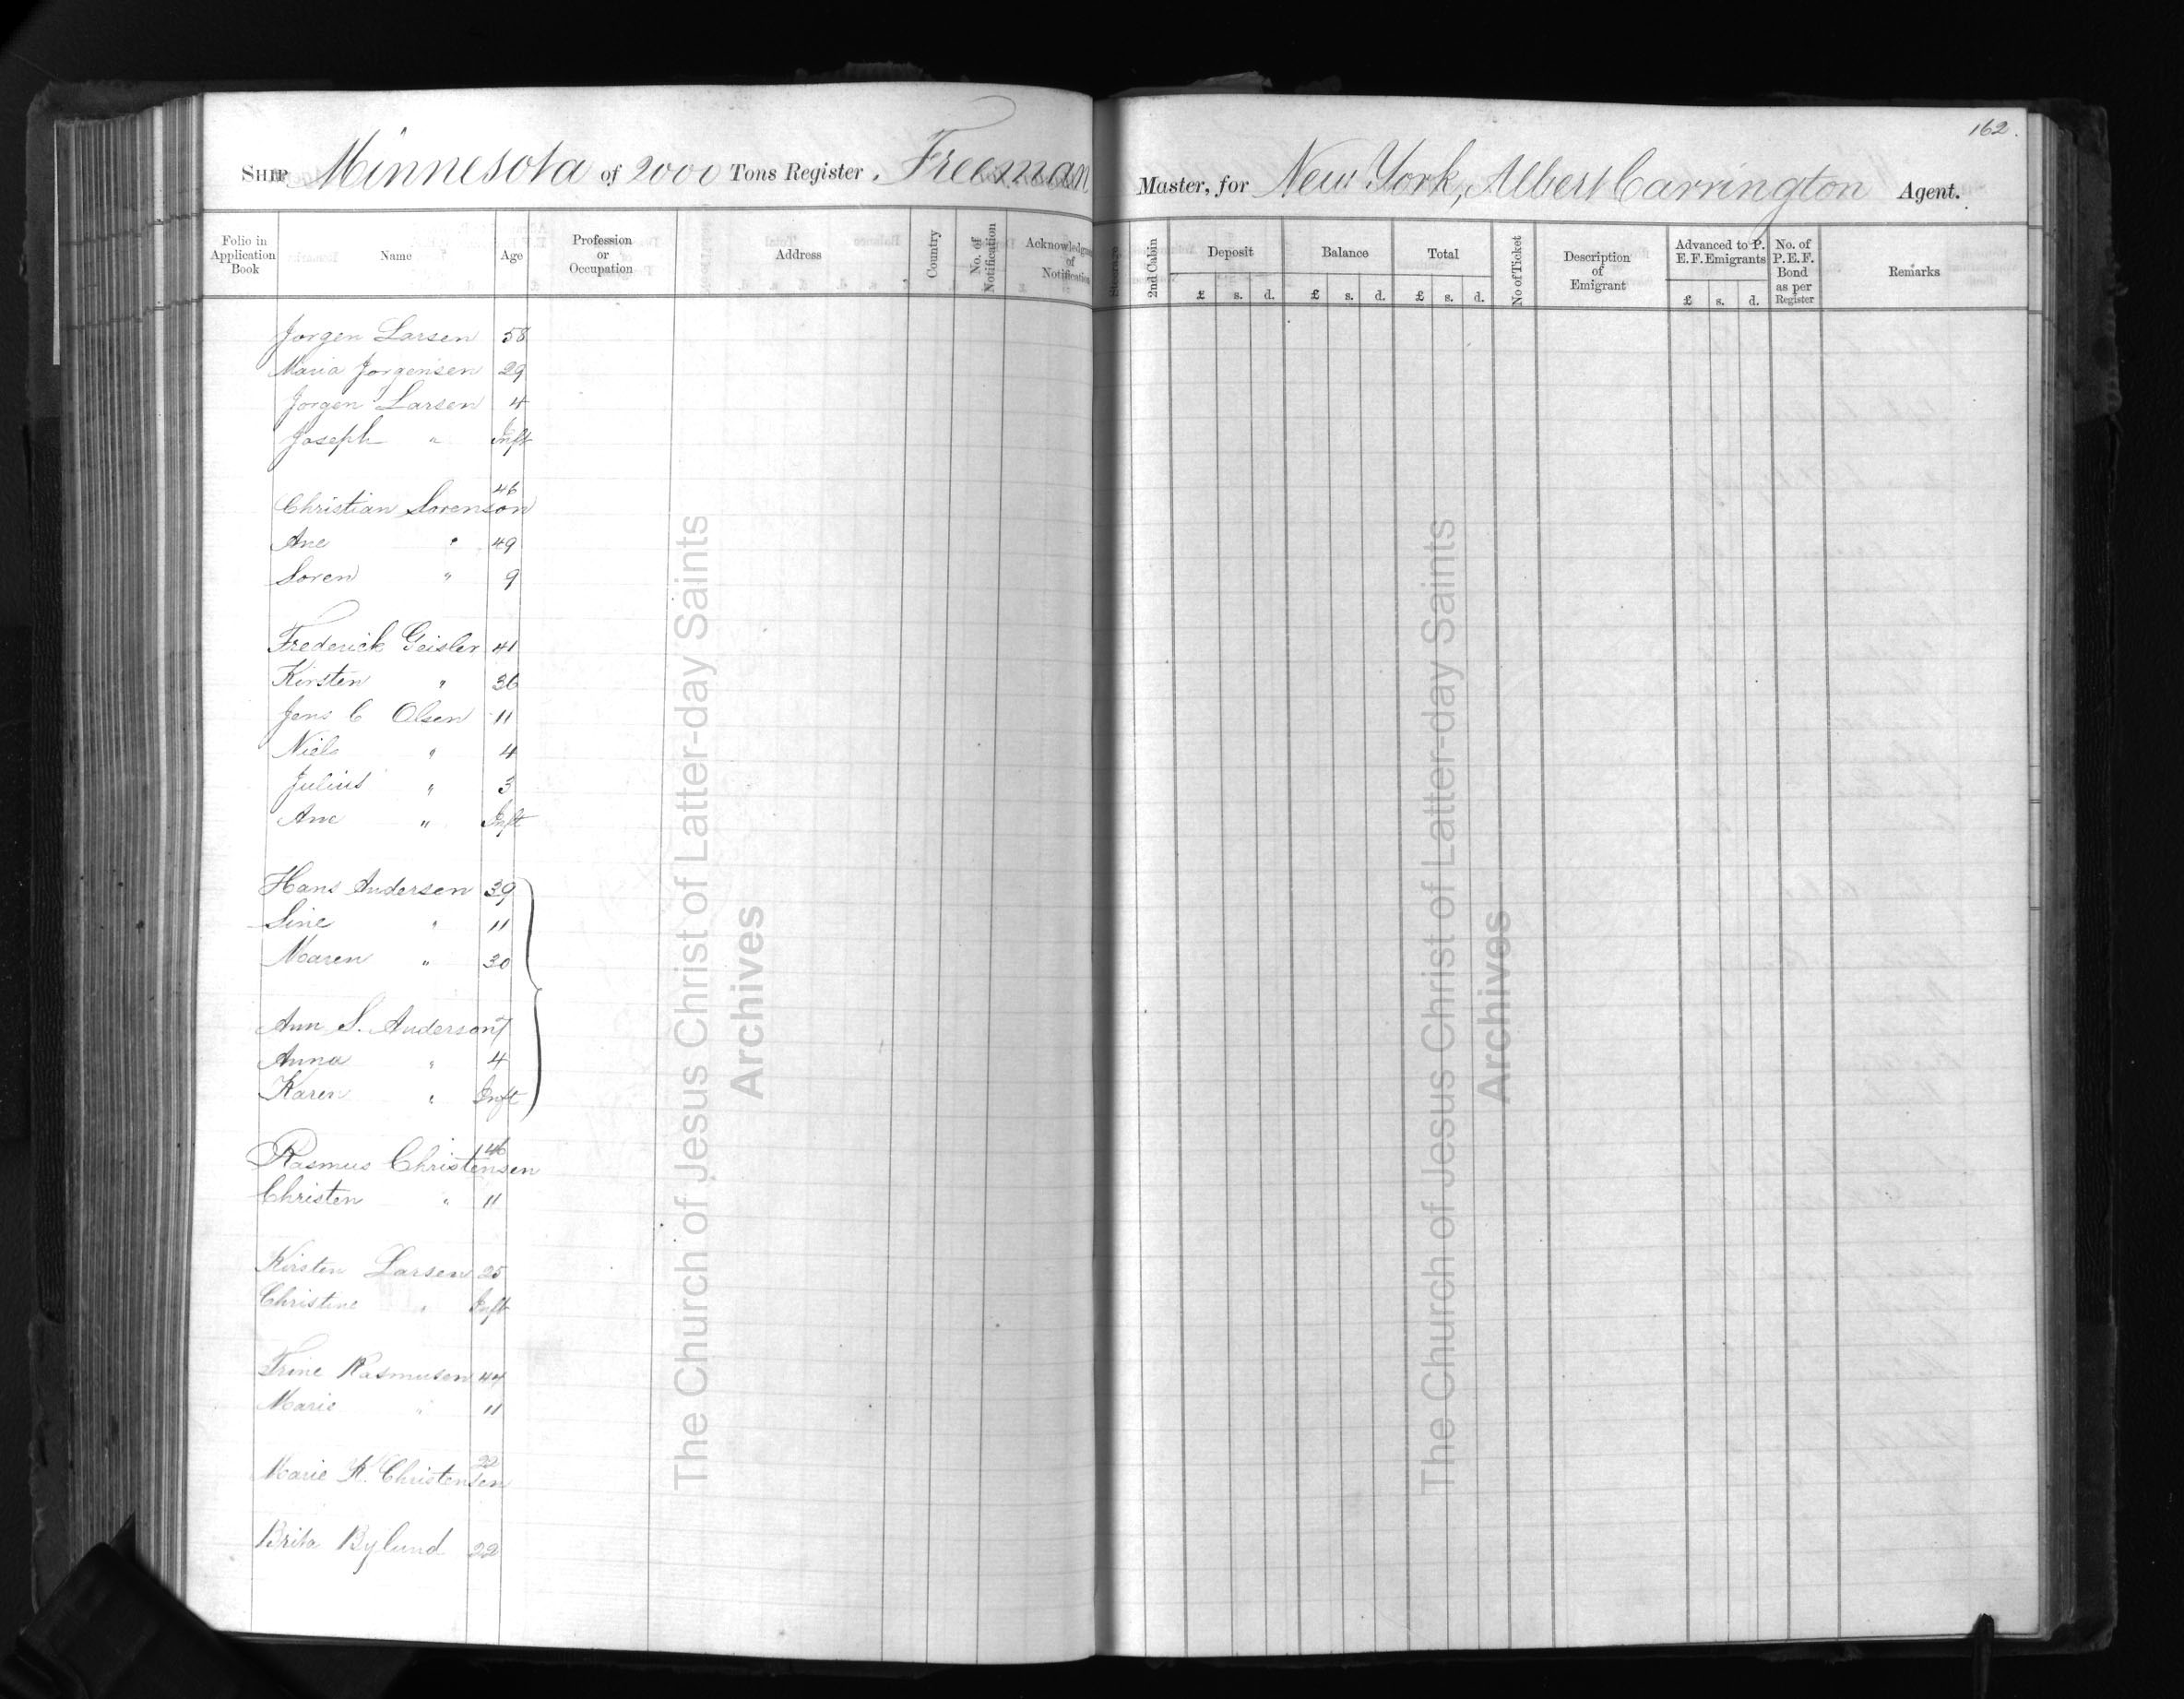 162.
SHIP Minnesota of 2000 Tons Register, Freeman Master, for New York, Albert Carrington Agent.
Folio in Application Book Name Age Profession or Occupation Address Country No. of Notification Acknowledgm of Notification Steerage 2nd Cabin Deposit Balance Total No of Ticket Description of Emigrant Advanced to P. E. F. Emigrants No. of P. E. F. Bond as per Register Remarks
£ s. d. £ s. d. £ s. d. £ s. d.
Jorgen Larsen 58
Maria Jorgensen 29
Jorgen Larsen 4
Joseph " Inft
Christian Sorenson 46
Ane " 49
Soren " 9
Frederick Geisler 41
Kirsten " 36
Jens C Olsen 11
Niels " 4
Julius " 3
Ane " Inft
Hans Andersen 39
Sine " 11
Maren " 30
Ann S. Anderson 7
Anna " 4
Karen " Inft
Rasmus Christensen 46
Christen " 11
Kirsten Larsen 25
Christine " Inft
Trine Rasmusen 44
Marie " 11
Marie K. Christensen 22
Brita Bylund 22
The Church of Jesus Christ of Latter-day Saints
Archives
The Church of Jesus Christ of Latter-day Saints
Archives